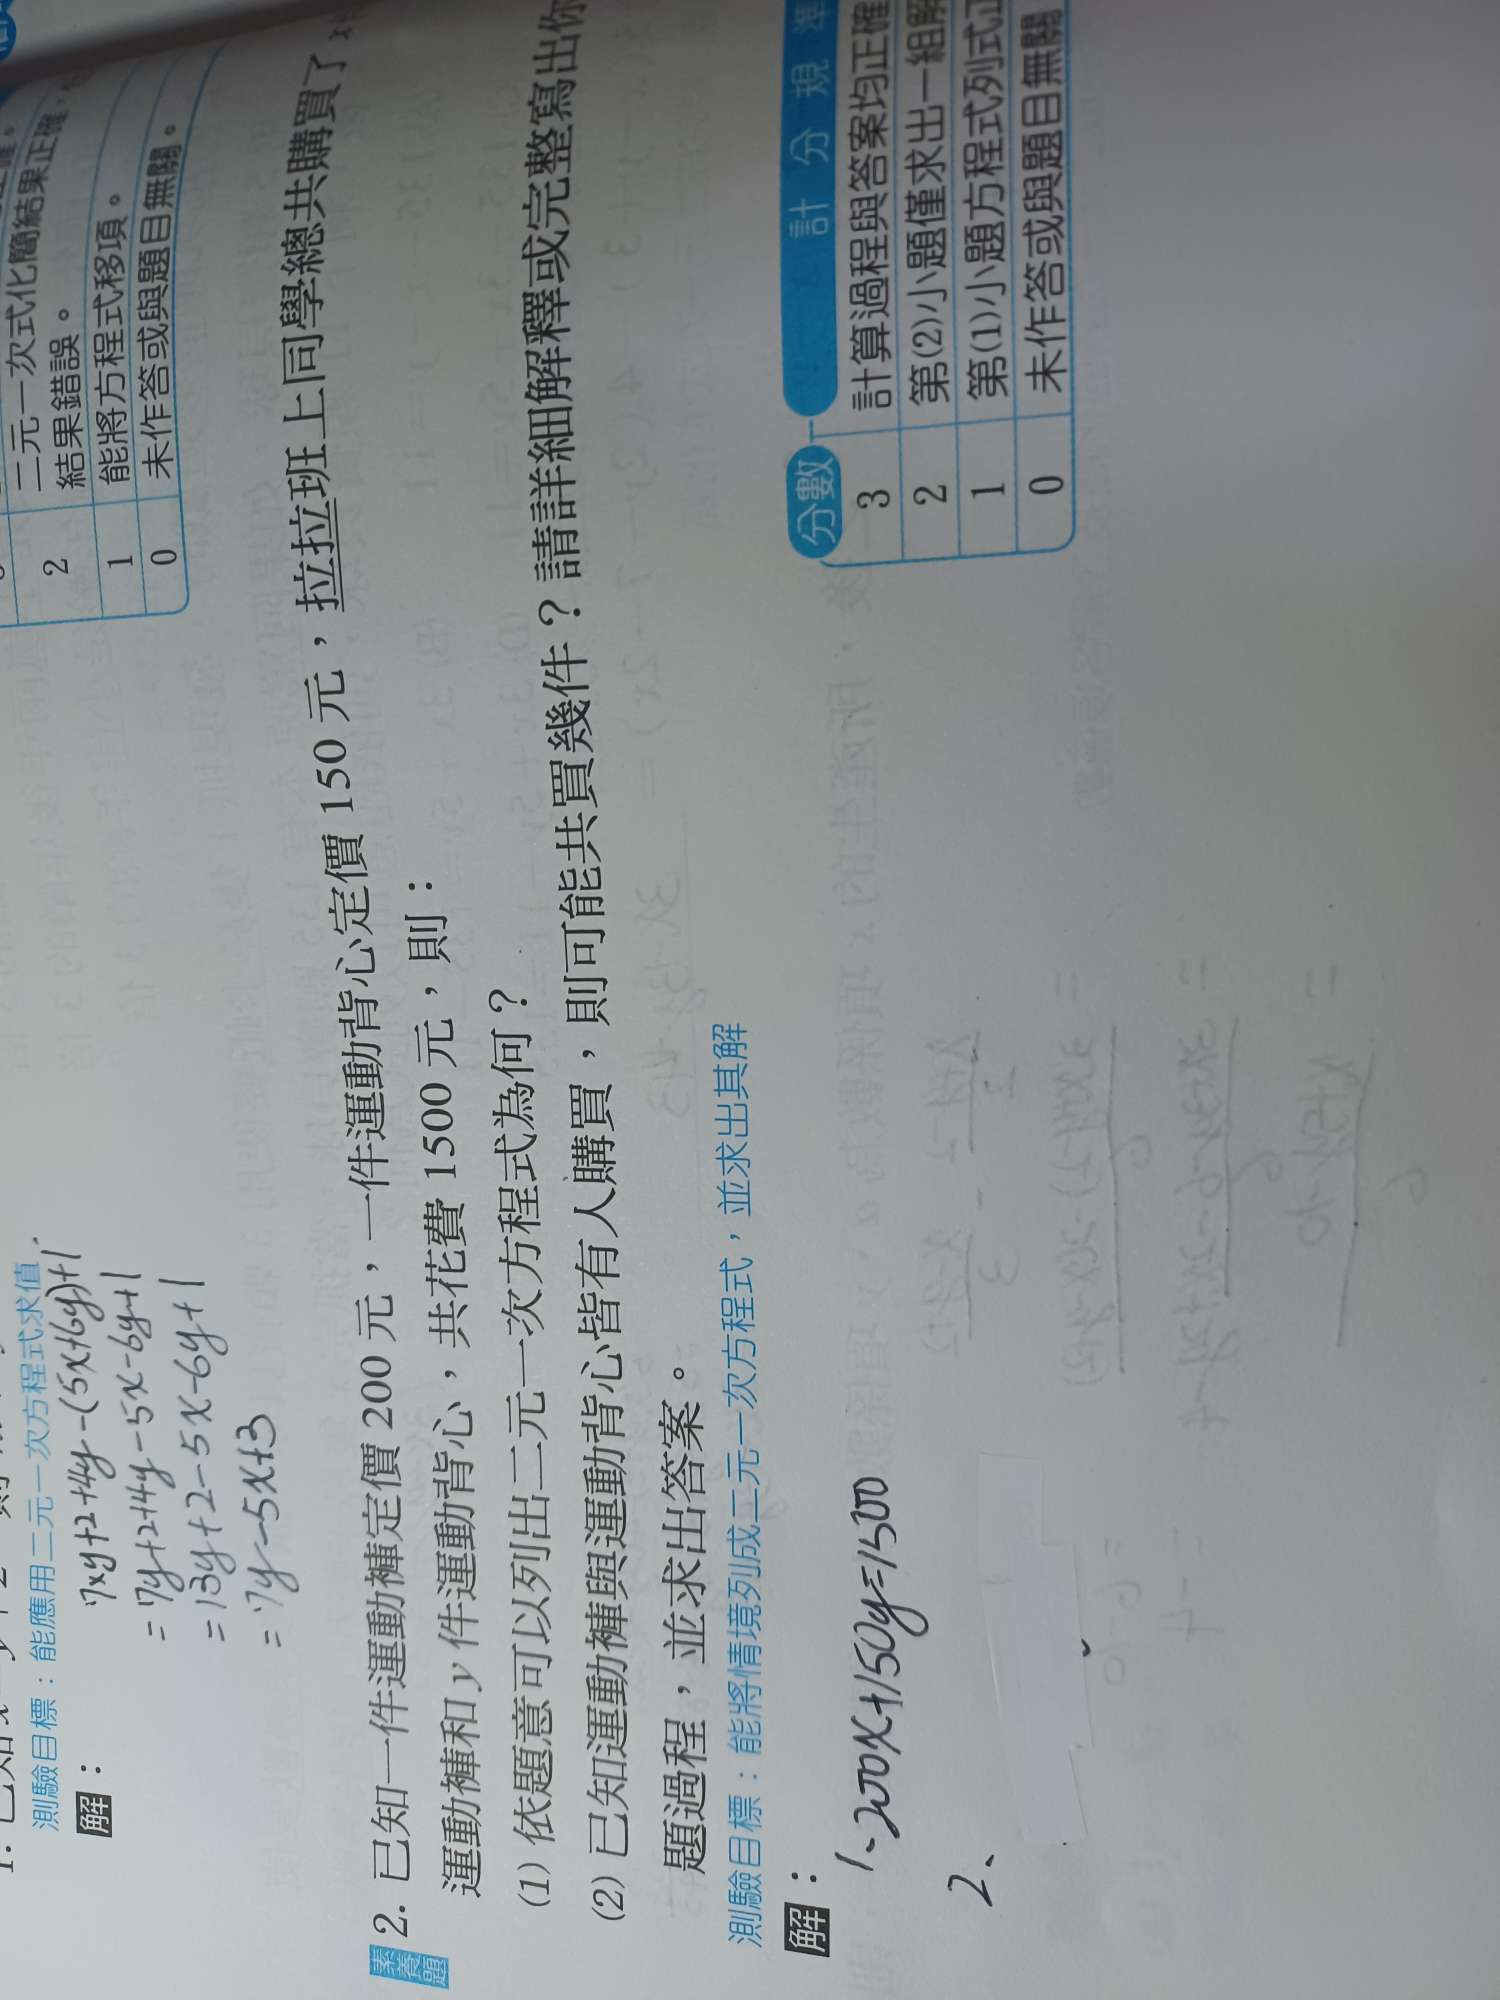 二元一次式化簡結果正確，
2 結果錯誤。
1 能將方程式移項。
0 未作答或與題目無關。
測驗目標：能應用二元一次方程式求值
解：
7xy+2+4y-(5x+6y)+1
=7y+2+4y-5x-6y+1
=13y+2-5x-6y+1
=7y-5x+3
素養題 2. 已知一件運動褲定價 200 元，一件運動背心定價 150 元，拉拉班上同學總共購買了 x
運動褲和 y 件運動背心，共花費 1500 元，則：
(1) 依題意可以列出二元一次方程式為何？
(2) 已知運動褲與運動背心皆有人購買，則可能共買幾件？請詳細解釋或完整寫出你
題過程，並求出答案。
測驗目標：能將情境列成二元一次方程式，並求出其解
解：
分數 計分規準
3 計算過程與答案均正確
2 第(2)小題僅求出一組解
1 第(1)小題方程式列式正
0 未作答或與題目無關
1、200x+150y=1500
2、